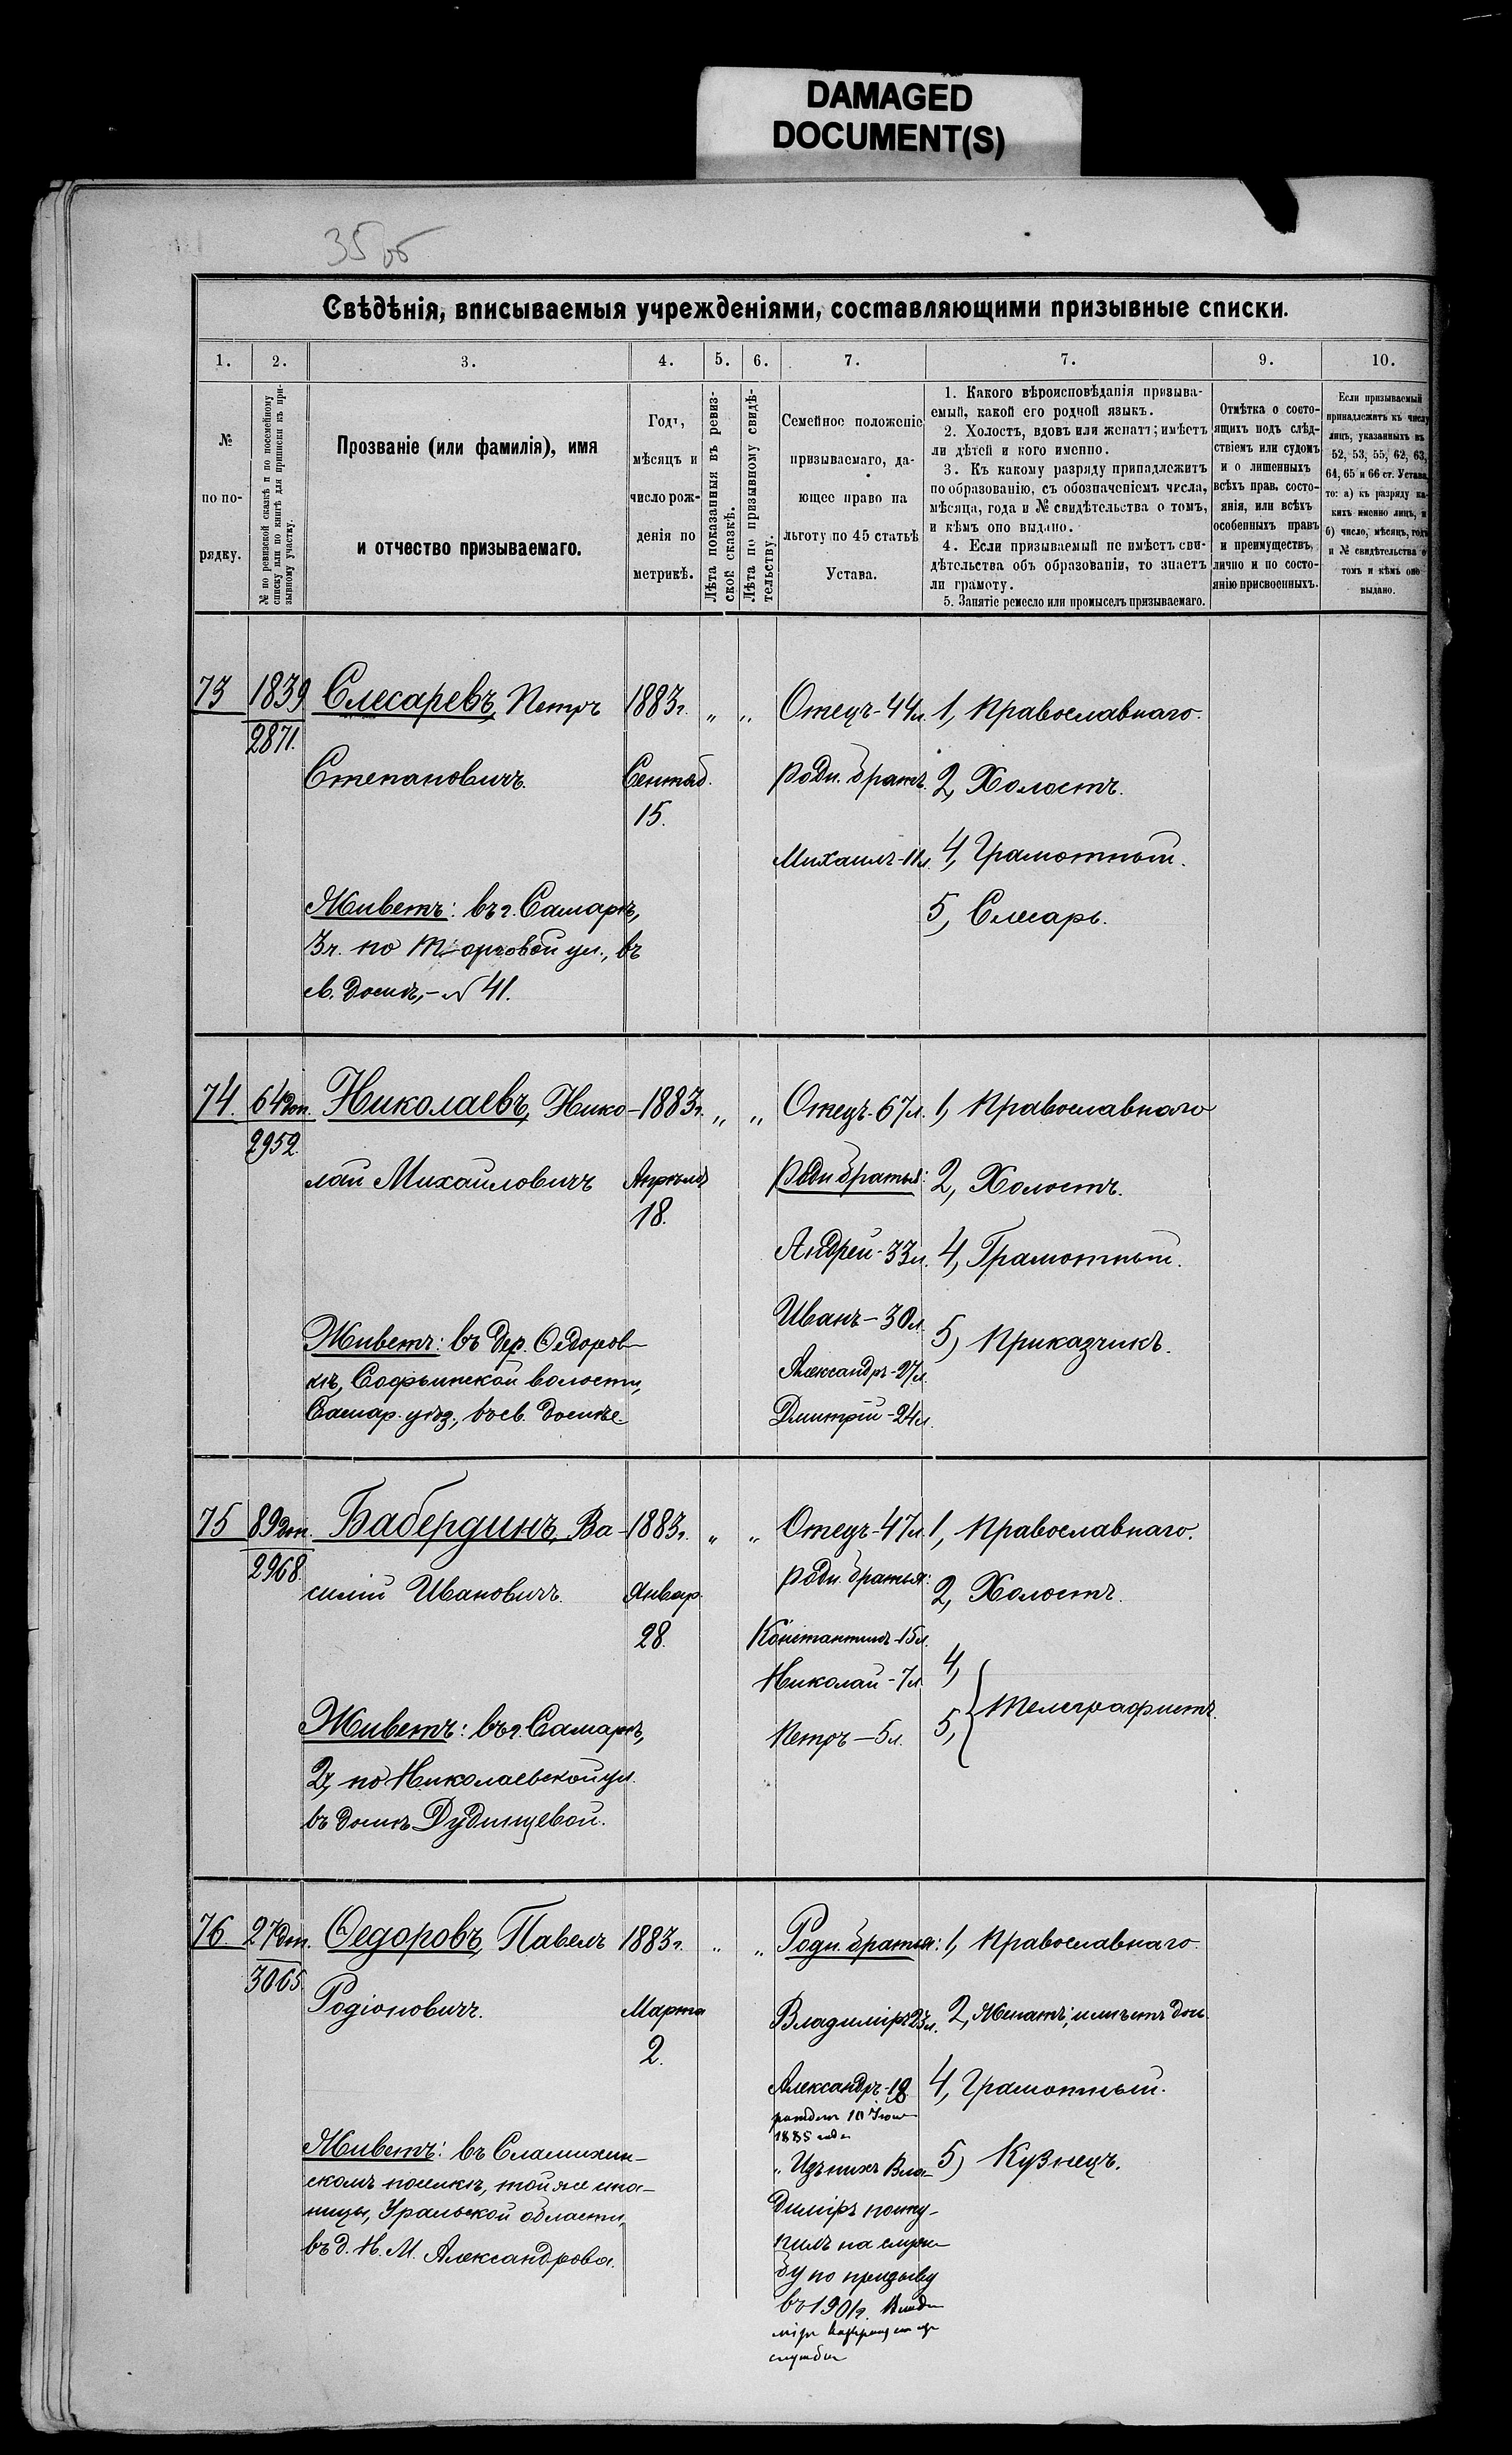 DAMAGED
DOCUMENT(S)
35об
Свѣдѣнія, вписываемыя учрежденіями, составляющими призывные списки.
1. 2. 3. 4. 5. 6. 7. 7. 9. 10.
№
по по-
рядку.
№ по ревизской сказкѣ и по посемейному
списку или по книгѣ для приписки къ при-
зывному участку.
Прозваніе (или фамилія), имя
и отчество призываемаго.
Годъ,
мѣсяцъ и
число рож-
денія по
метрикѣ.
Лѣта показанныя въ ревиз-
ской сказкѣ.
Лѣта по призывному свидѣ-
тельству.
Семейное положеніе
призываемаго, да-
ющее право на
льготу по 45 статьѣ
Устава.
1. Какого вѣроисповѣданія призыва-
емый, какой его родной языкъ.
2. Холостъ, вдовъ или женатъ; имѣетъ
ли дѣтей и кого именно.
3. Къ какому разряду принадлежитъ
по образованію, съ обозначеніемъ числа,
мѣсяца, года и № свидѣтельства о томъ,
и кѣмъ оно выдано.
4. Если призываемый не имѣетъ сви-
дѣтельства объ образованіи, то знаетъ
ли грамоту.
5. Занятіе ремесло или промыселъ призываемаго.
Отмѣтка о состо-
ящихъ подъ слѣд-
ствіемъ или судомъ
и о лишенныхъ
всѣхъ прав. состо-
янія, или всѣхъ
особенныхъ правъ
и преимуществъ,
лично и по состо-
янію присвоенныхъ.
Если призываемый
принадлежитъ къ числу
лицъ, указанныхъ въ
52, 53, 55, 62, 63,
64, 65 и 66 ст. Устава,
то: а) къ разряду ка-
кихъ именно лицъ, и
б) число, мѣсяцъ, годъ
и № свидѣтельства о
томъ и кѣмъ оно
выдано.
73 1839 Слесаревъ, Петръ 1883г. „ „ Отецъ-44л. 1, Православнаго.
2871.
Степановичъ. Сентяб. родн. братъ. 2, Холостъ.
15.
Михаилъ-11л. 4, Грамотный.
Живетъ: въ г. Самарѣ, 5, Слесарь.
3ч. по Торговой ул., въ
с. домѣ, - № 41.
74. 64 доп. Николаевъ, Нико- 1883г. „ „ Отецъ-67л. 1, Православнаго
2952.
лай Михаиловичъ Апрѣля родн братья: 2, Холостъ.
18.
Андрей-33л. 4, Грамотный.
Иванъ-30л. 5, Приказчикъ.
Живетъ: въ дер. Ѳедоров-
кѣ, Софьинской волости, Александръ-27л.
Самар. уѣз., въ св. домѣ. Дмитрій-24л.
75 89 доп. Бабердинъ, Ва- 1883г. „ „ Отецъ-47л. 1, Православнаго.
2968. родн. братья:
силій Ивановичъ. Январ. 2, Холостъ.
28. Константинъ-15л.
Николай-7л. 4,
Живетъ: въ г. Самарѣ, Петръ-5л. 5, Телеграфистъ.
2ч, по Николаевской ул.
въ домѣ Дудинцевой.
76. 27 доп. Ѳедоровъ, Павелъ 1883г. „ „ Родн. братья: 1, Православнаго.
3065.
Родіоновичъ. Марта Владиміръ 23л. 2, Женатъ; имѣетъ дочь.
2.
Александръ-18 4, Грамотный.
1885 года
Живетъ: въ Сламихин- „Изъ нихъ Вла- 5) Кузнецъ.
скомъ поселкѣ, той же ста-
ницы, Уральской области, диміръ посту-
въ д. Н. М. Александрова. пилъ на служ-
бу по призыву
въ 1901г. Влади-
міръ
службы